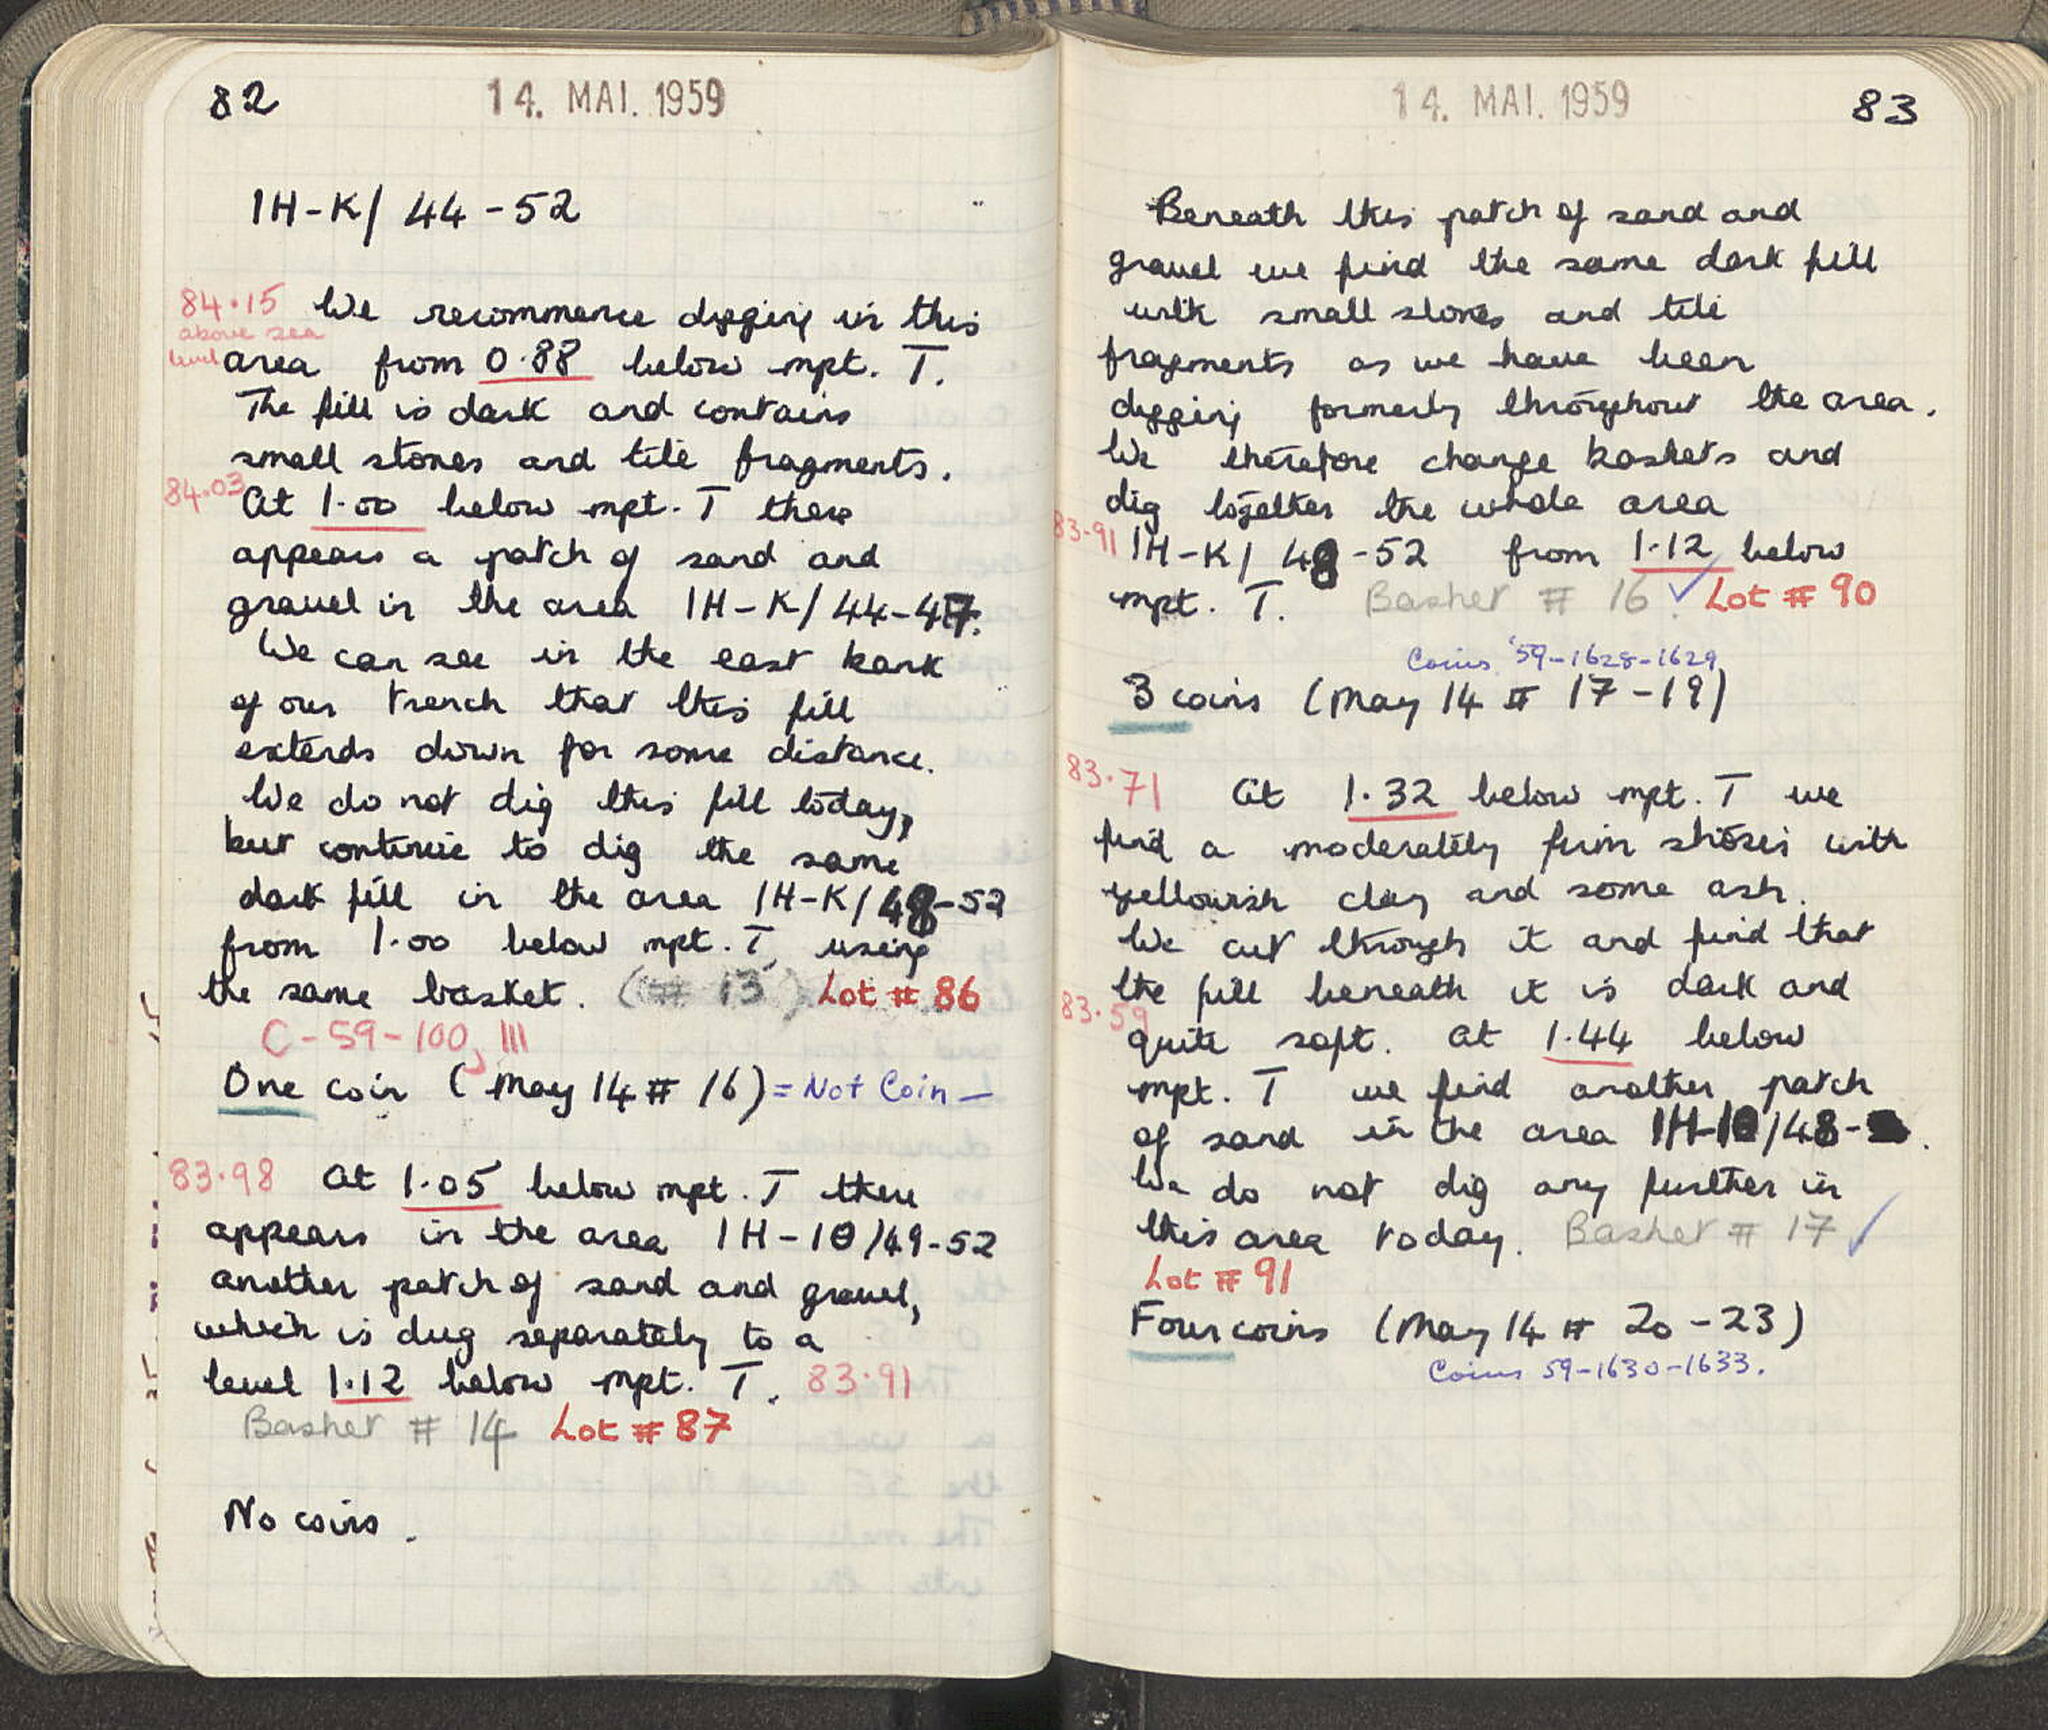 82
14. MAI. 1959
IH-K/ 44-52
84.15
above sea
level
We recommence digging in this
area from 0.88 below mpt. T.
The fill is dark and contains
small stones and tile fragments.
84.03
At 1.00 below mpt. T there
appears a patch of sand and
gravel in the area IH-K/44-47.
We can see in the east bank
of our trench that this fill
extends down for some distance.
We do not dig this fill today,
but continue to dig the same
dark fill in the area IH-K/48-52
from 1.00 below mpt. T, using
the same basket. (# 13) Lot # 86
C-59-100, 111
One coin (May 14 # 16) = Not Coin —
83.98
At 1.05 below mpt. T there
appears in the area IH-10/49-52
another patch of sand and gravel,
which is dug separately to a
level 1.12 below mpt. T. 83.91
Basket # 14 Lot # 87
No coins.
14. MAI. 1959
83
Beneath this patch of sand and
gravel we find the same dark fill
with small stones and tile
fragments as we have been
digging formerly throughout the area.
We therefore change baskets and
dig together the whole area
83.91
IH-K/ 48-52 from 1.12 below
mpt. T. Basket # 16 ✓ Lot # 90
Coins '59-1628-1629
3 coins (May 14 # 17-19)
83.71
At 1.32 below mpt. T we
find a moderately firm strosis with
yellowish clay and some ash.
We cut through it and find that
the fill beneath it is dark and
83.59
quite soft. At 1.44 below
mpt. T we find another patch
of sand in the area IH-10/48-
We do not dig any further in
this area today. Basket # 17 ✓
Lot # 91
Four coins (May 14 # 20-23)
Coins 59-1630-1633.